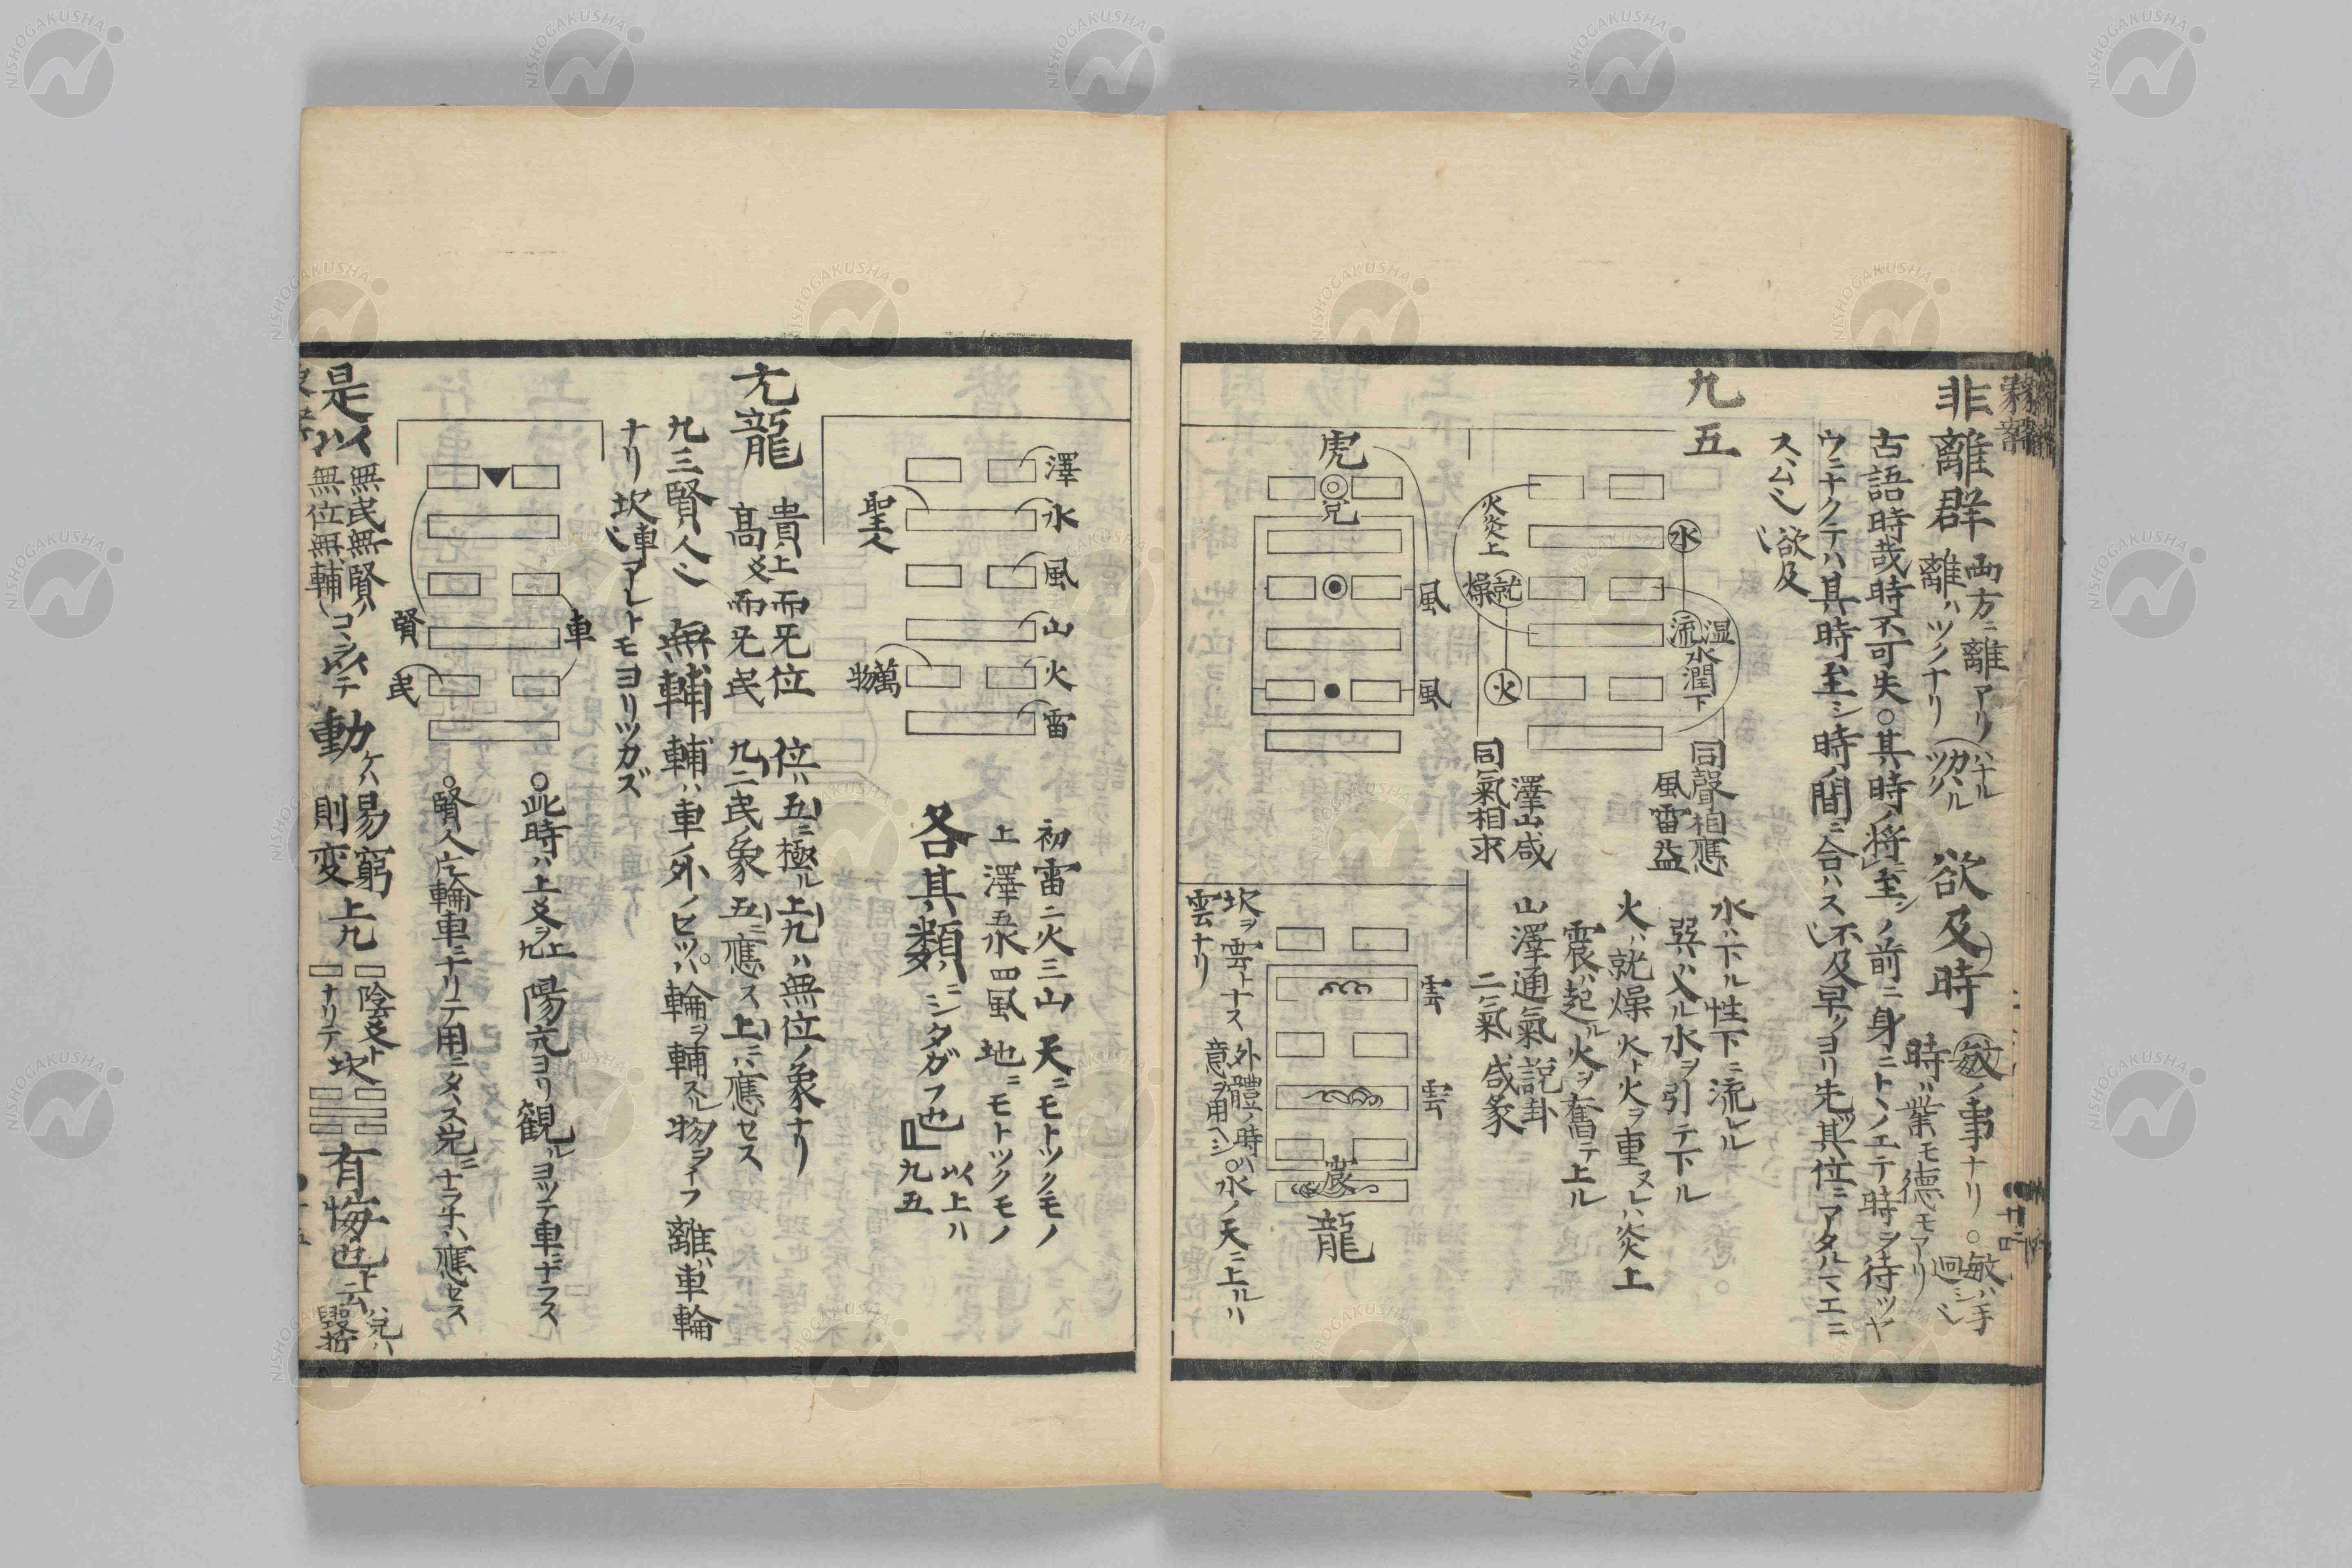 非離群
両方ニ離アリ
離ハツクナリ
ハナルル
ツク
欲及時
敏ノ事ナリ○敏ハ手
時ハ業モ德モアリ
古語時哉時不可失○其時ノ将至シノ前ニ身ニトヽノエテ時ヲ待ツヤ
ウニナクテハ其時至シ時ノ間ニ合ハス不及早クヨリ先其位ニアタルマエニ
スヽム也欲及
九五
水
流湿
水潤下
火炎上
就燥
火
同聲相應
風雷益
澤山咸
同氣相求
水ハ下ル性下ニ流レル
巽ハ入ル水ヲ引テ下ル
火ハ就燥火ト火ヲ重ヌレハ炎上
震ハ起ル火ヲ奮テ上ル
山澤通氣説卦
二氣咸象
虎
兌
風
風
雲
雲
震
龍
坎ヲ雲トナス
雲ナリ
外體ノ時ハ水ノ天ニ上ルハ
意ヲ用ヘシ
澤
水
風
山
火
雷
聖人
萬物
初雷二火三山
上澤五水四風
天ニモトツクモノ
地ニモトツクモノ
各其類ニシタガフ也
以上ハ
九五
亢龍
貴上而无位
高爻而无民
位ハ五ニ極ル上九ハ無位ノ象ナリ
九二民ノ象五ニ應ス上ニハ應セス
九三賢人也
無輔
輔ハ車ノ外ノセツハ輪ヲ輔スル物ヲイフ離ハ車輪
ナリ坎車アレトモヨリツカズ
車
賢
民
○此時ハ上爻ヲ上九
陽亢ヨリ觀ルヨツテ車ニナラス
○賢人
輪車ニナリテ用ニタヽス
應セス
是以
無民無賢ハ
無位無輔
コヽヲ以テ
動
ケハ
易窮
則変
上九
陰爻ト
ナリテ坎
有悔也
ト云
ハ兌ハ
毀折